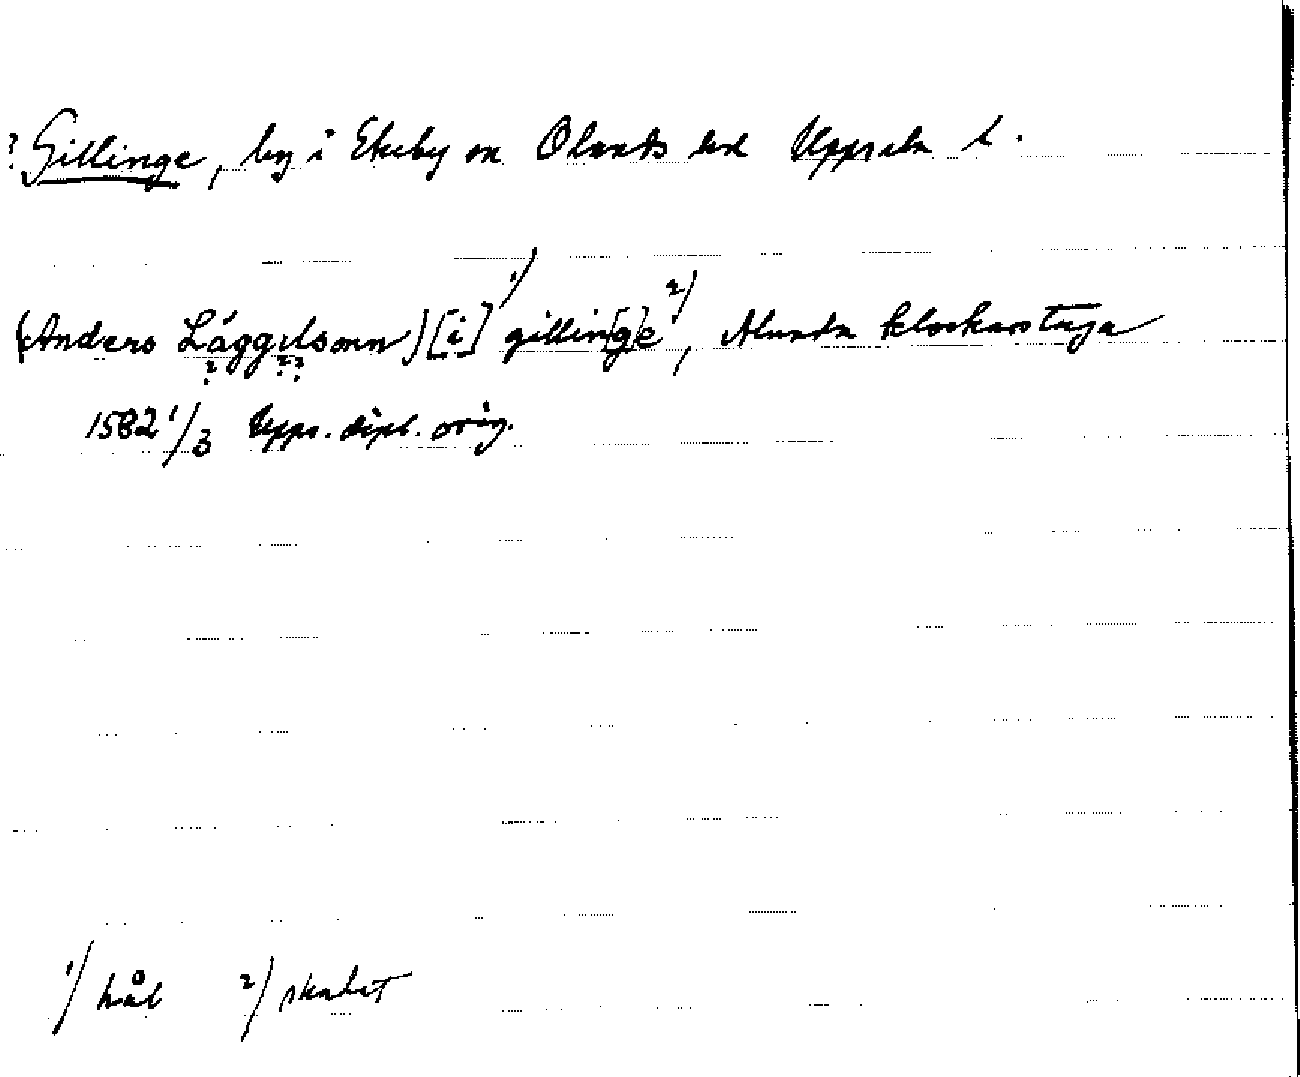 ? Gillinge, by i Ekeby sn Olands hd Uppsala l.
(Anders Låggilsonn) [i] 1) gillin[g]e 2), Alunda klockarstuga
? ? ?
1582 1/3 Upps. dipl. orig.
1) hål 2) skadat